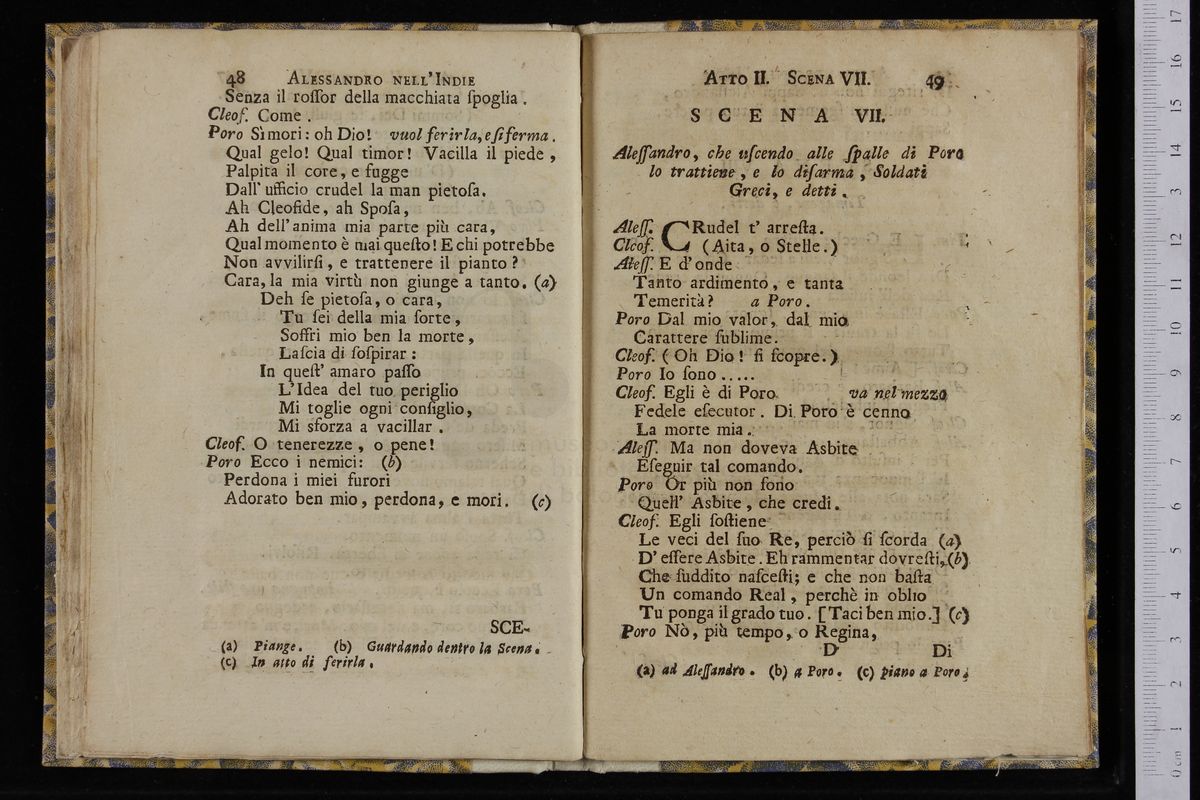 48 ALESSANDRO NELL'INDIE
Senza il roſſor della macchiata ſpoglia .
Cleof. Come .
Poro Sì mori : oh Dio! vuol ferirla, e ſi ferma .
Qual gelo! Qual timor! Vacilla il piede ,
Palpita il core, e fugge
Dall' ufficio crudel la man pietoſa.
Ah Cleofide, ah Spoſa,
Ah dell'anima mia parte più cara,
Qual momento è mai queſto! E chi potrebbe
Non avvilirſi , e trattenere il pianto ?
Cara, la mia virtù non giunge a tanto. (a)
Deh ſe pietoſa, o cara,
Tu ſei della mia ſorte,
Soffri mio ben la morte,
Laſcia di ſoſpirar :
In queſt' amaro paſſo
L'Idea del tuo periglio
Mi toglie ogni conſiglio,
Mi sforza a vacillar .
Cleof. O tenerezze , o pene!
Poro Ecco i nemici: (b)
Perdona i miei furori
Adorato ben mio, perdona, e mori. (c)
SCE-
(a) Piange. (b) Guardando dentro la Scena.
(c) In atto di ferirla .
ATTO II. SCENA VII. 49
SCENA VII.
Aleſſandro, che uſcendo alle ſpalle di Poro
lo trattiene , e lo diſarma , Soldati
Greci, e detti .
Aleſſ. CRudel t' arreſta.
Cleof. (Aita, o Stelle.)
Aleſſ. E d'onde
Tanto ardimento, e tanta
Temerità? a Poro.
Poro Dal mio valor, dal mio
Carattere ſublime.
Cleof. ( Oh Dio! ſi ſcopre.)
Poro Io ſono .....
Cleof. Egli è di Poro va nel mezzo
Fedele eſecutor . Di Poro è cenno
La morte mia.
Aleſſ. Ma non doveva Asbite
Eſeguir tal comando.
Poro Or più non ſono
Quell' Asbite , che credi.
Cleof. Egli ſoſtiene
Le veci del ſuo Re, perciò ſi ſcorda (a)
D' eſſere Asbite. Eh rammentar dovreſti, (b)
Che ſuddito naſceſti; e che non baſta
Un comando Real , perchè in oblìo
Tu ponga il grado tuo. [Taci ben mio.] (c)
Poro Nò, più tempo, o Regina,
D Di
(a) ad Aleſſandro . (b) a Poro . (c) piano a Poro .
0 cm 1 2 3 4 5 6 7 8 9 10 11 12 13 14 15 16 17